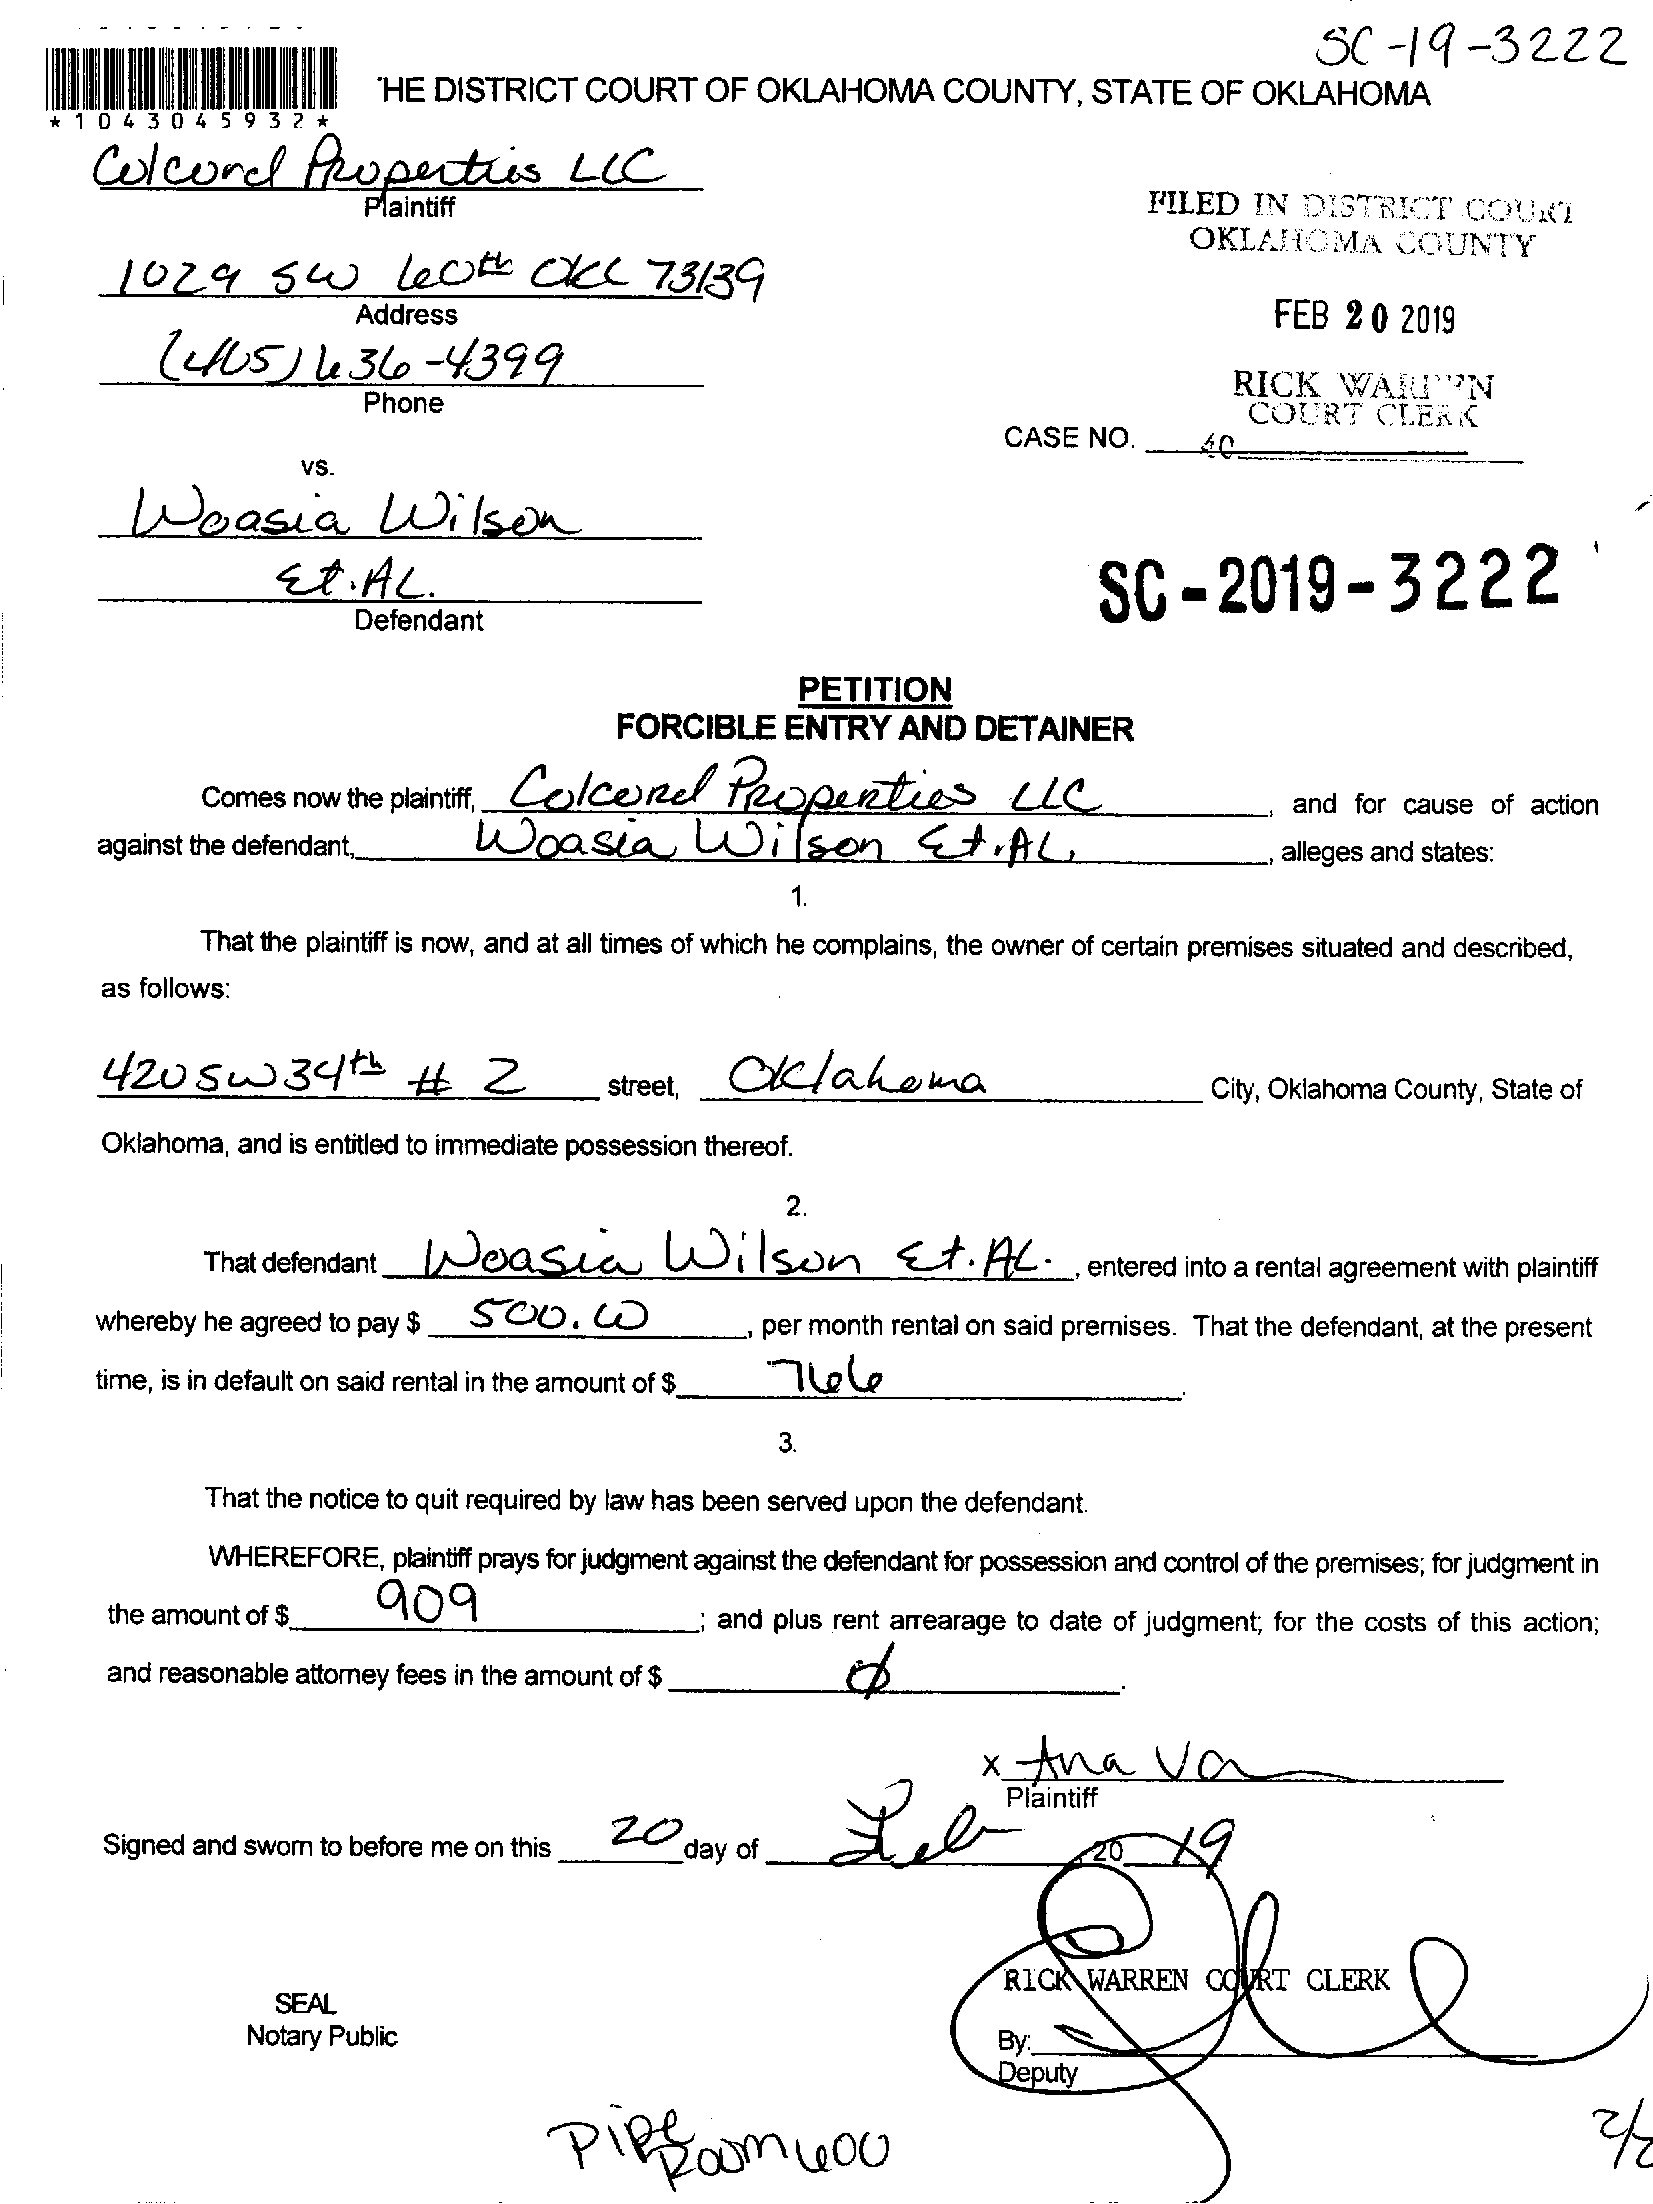 SC-19-3222
*1043045932*
HE DISTRICT COURT OF OKLAHOMA COUNTY, STATE OF OKLAHOMA
Colcord Properties LLC
Plaintiff
FILED IN DISTRICT COURT
OKLAHOMA COUNTY
1029 SW 60th OKC 73139
Address
FEB 20 2019
(405) 636-4399
Phone
RICK WARREN
COURT CLERK
CASE NO. 40
vs.
Woasia Wilson
Et. AL.
Defendant
SC-2019-3222
PETITION
FORCIBLE ENTRY AND DETAINER
Comes now the plaintiff, Colcord Properties LLC, and for cause of action
against the defendant, Woasia Wilson Et. AL., alleges and states:
1.
That the plaintiff is now, and at all times of which he complains, the owner of certain premises situated and described,
as follows:
420 SW 34th # 2 street, Oklahoma City, Oklahoma County, State of
Oklahoma, and is entitled to immediate possession thereof.
2.
That defendant Woasia Wilson Et. AL., entered into a rental agreement with plaintiff
whereby he agreed to pay $ 500.00, per month rental on said premises. That the defendant, at the present
time, is in default on said rental in the amount of $ 766.
3.
That the notice to quit required by law has been served upon the defendant.
WHEREFORE, plaintiff prays for judgment against the defendant for possession and control of the premises; for judgment in
the amount of $ 909; and plus rent arrearage to date of judgment; for the costs of this action;
and reasonable attorney fees in the amount of $ Ø.
x Ana
Plaintiff
Signed and sworn to before me on this 20 day of Feb, 20 19
RICK WARREN COURT CLERK
SEAL
Notary Public
By:
Deputy
Room 600